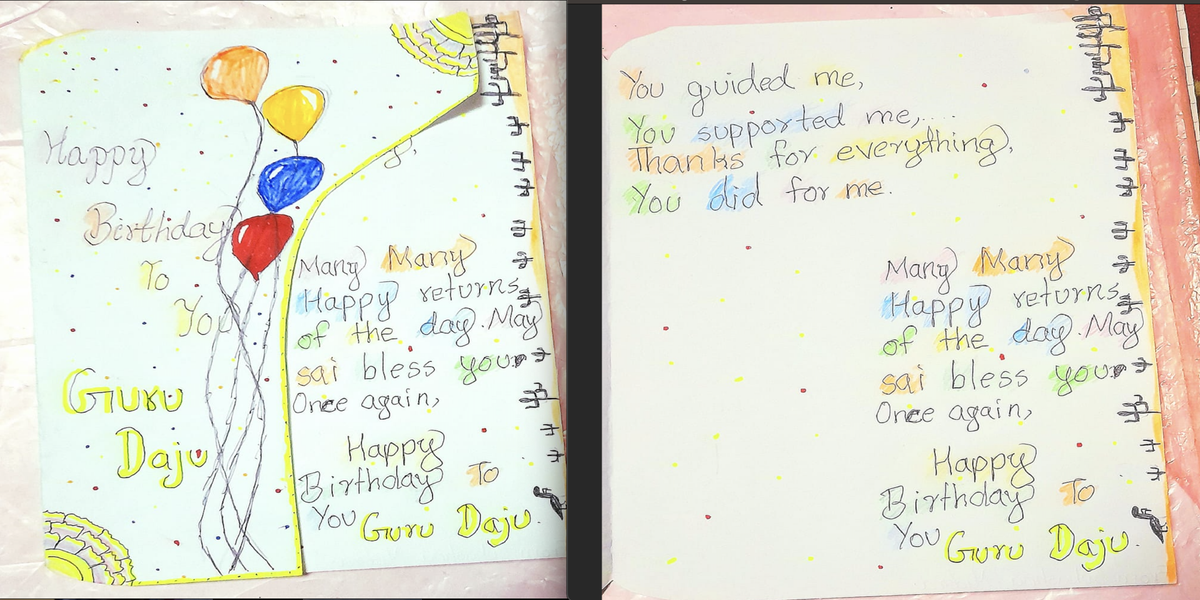 Happy
Birthday
To
You
Guru
Daju
Many Many
Happy returns
of the day. May
sai bless your
Once again,
Happy
Birthday To
You Guru Daju.
You guided me,
You supported me,....
Thanks for everything,
You did for me.
Many Many
Happy returns
of the day. May
sai bless your
Once again,
Happy
Birthday To
You Guru Daju.